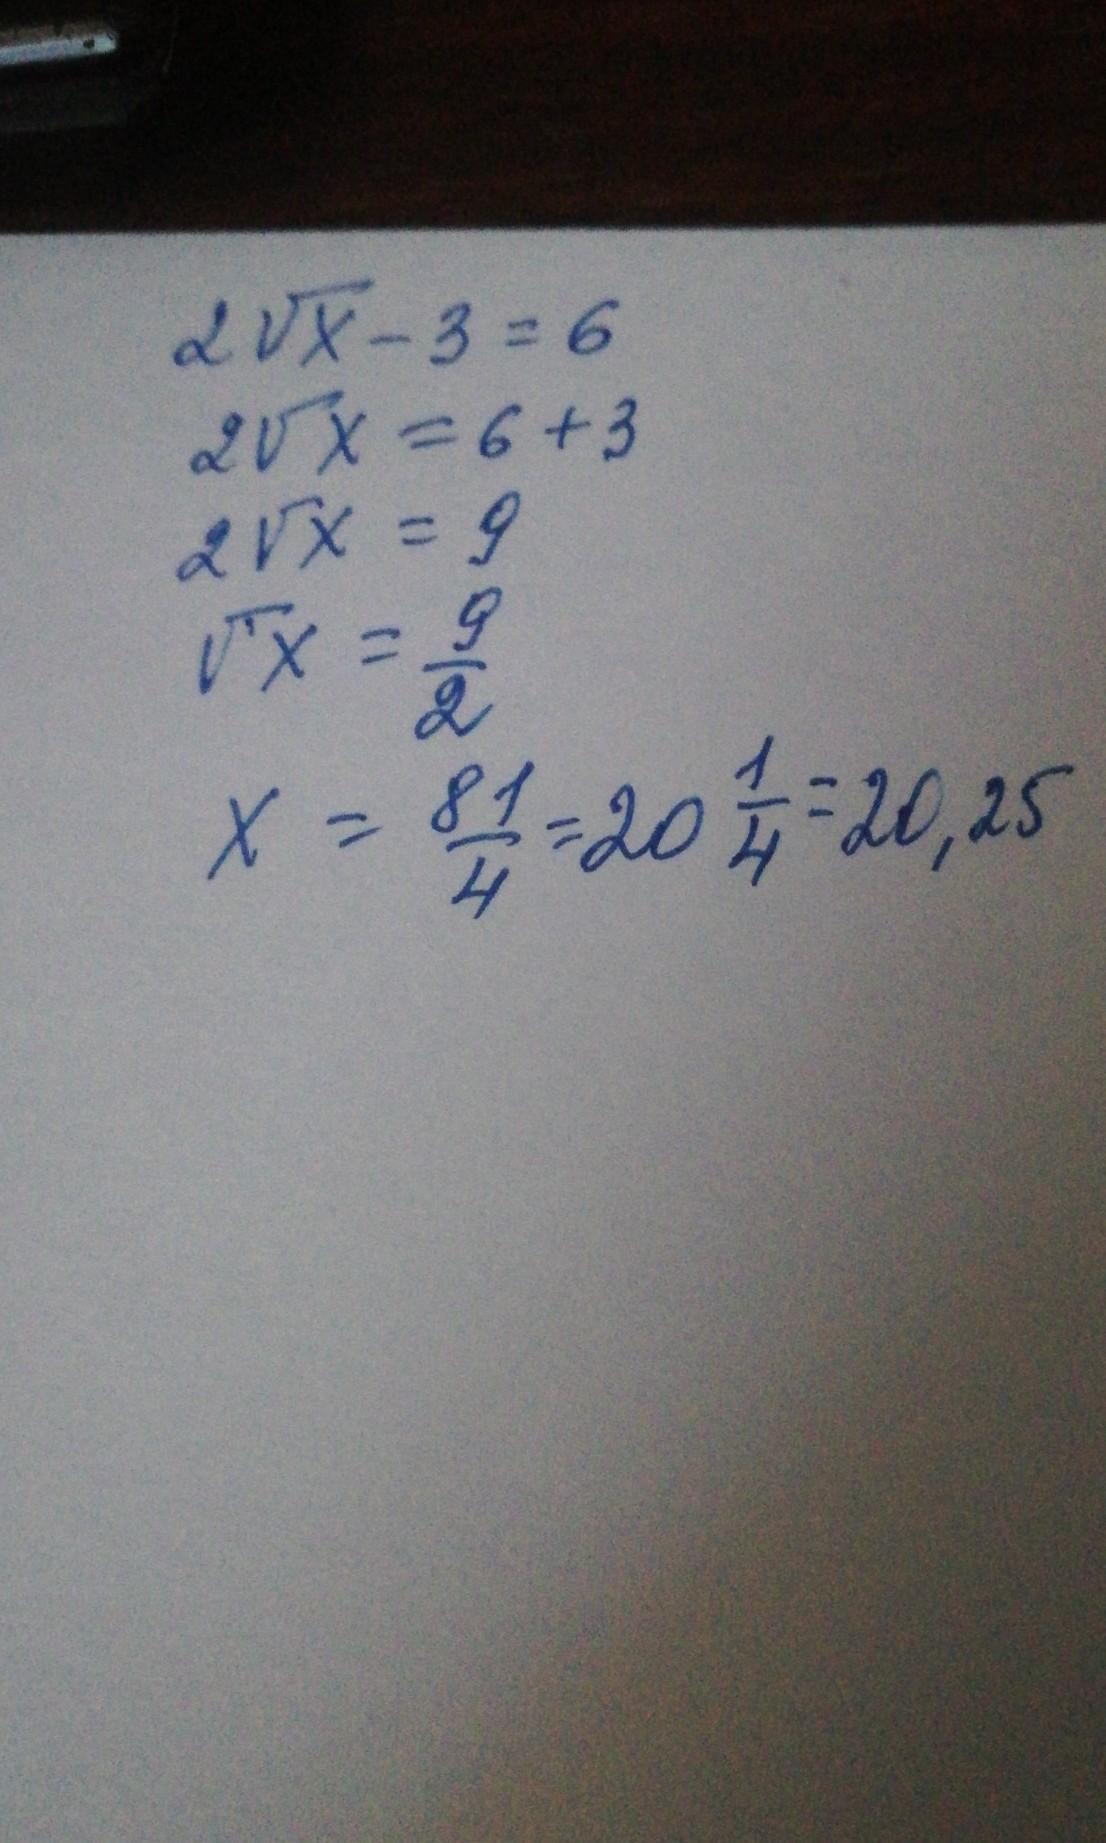 2√x - 3 = 6
2√x = 6 + 3
2√x = 9
√x = 9/2
x = 81/4 = 20 1/4 = 20,25